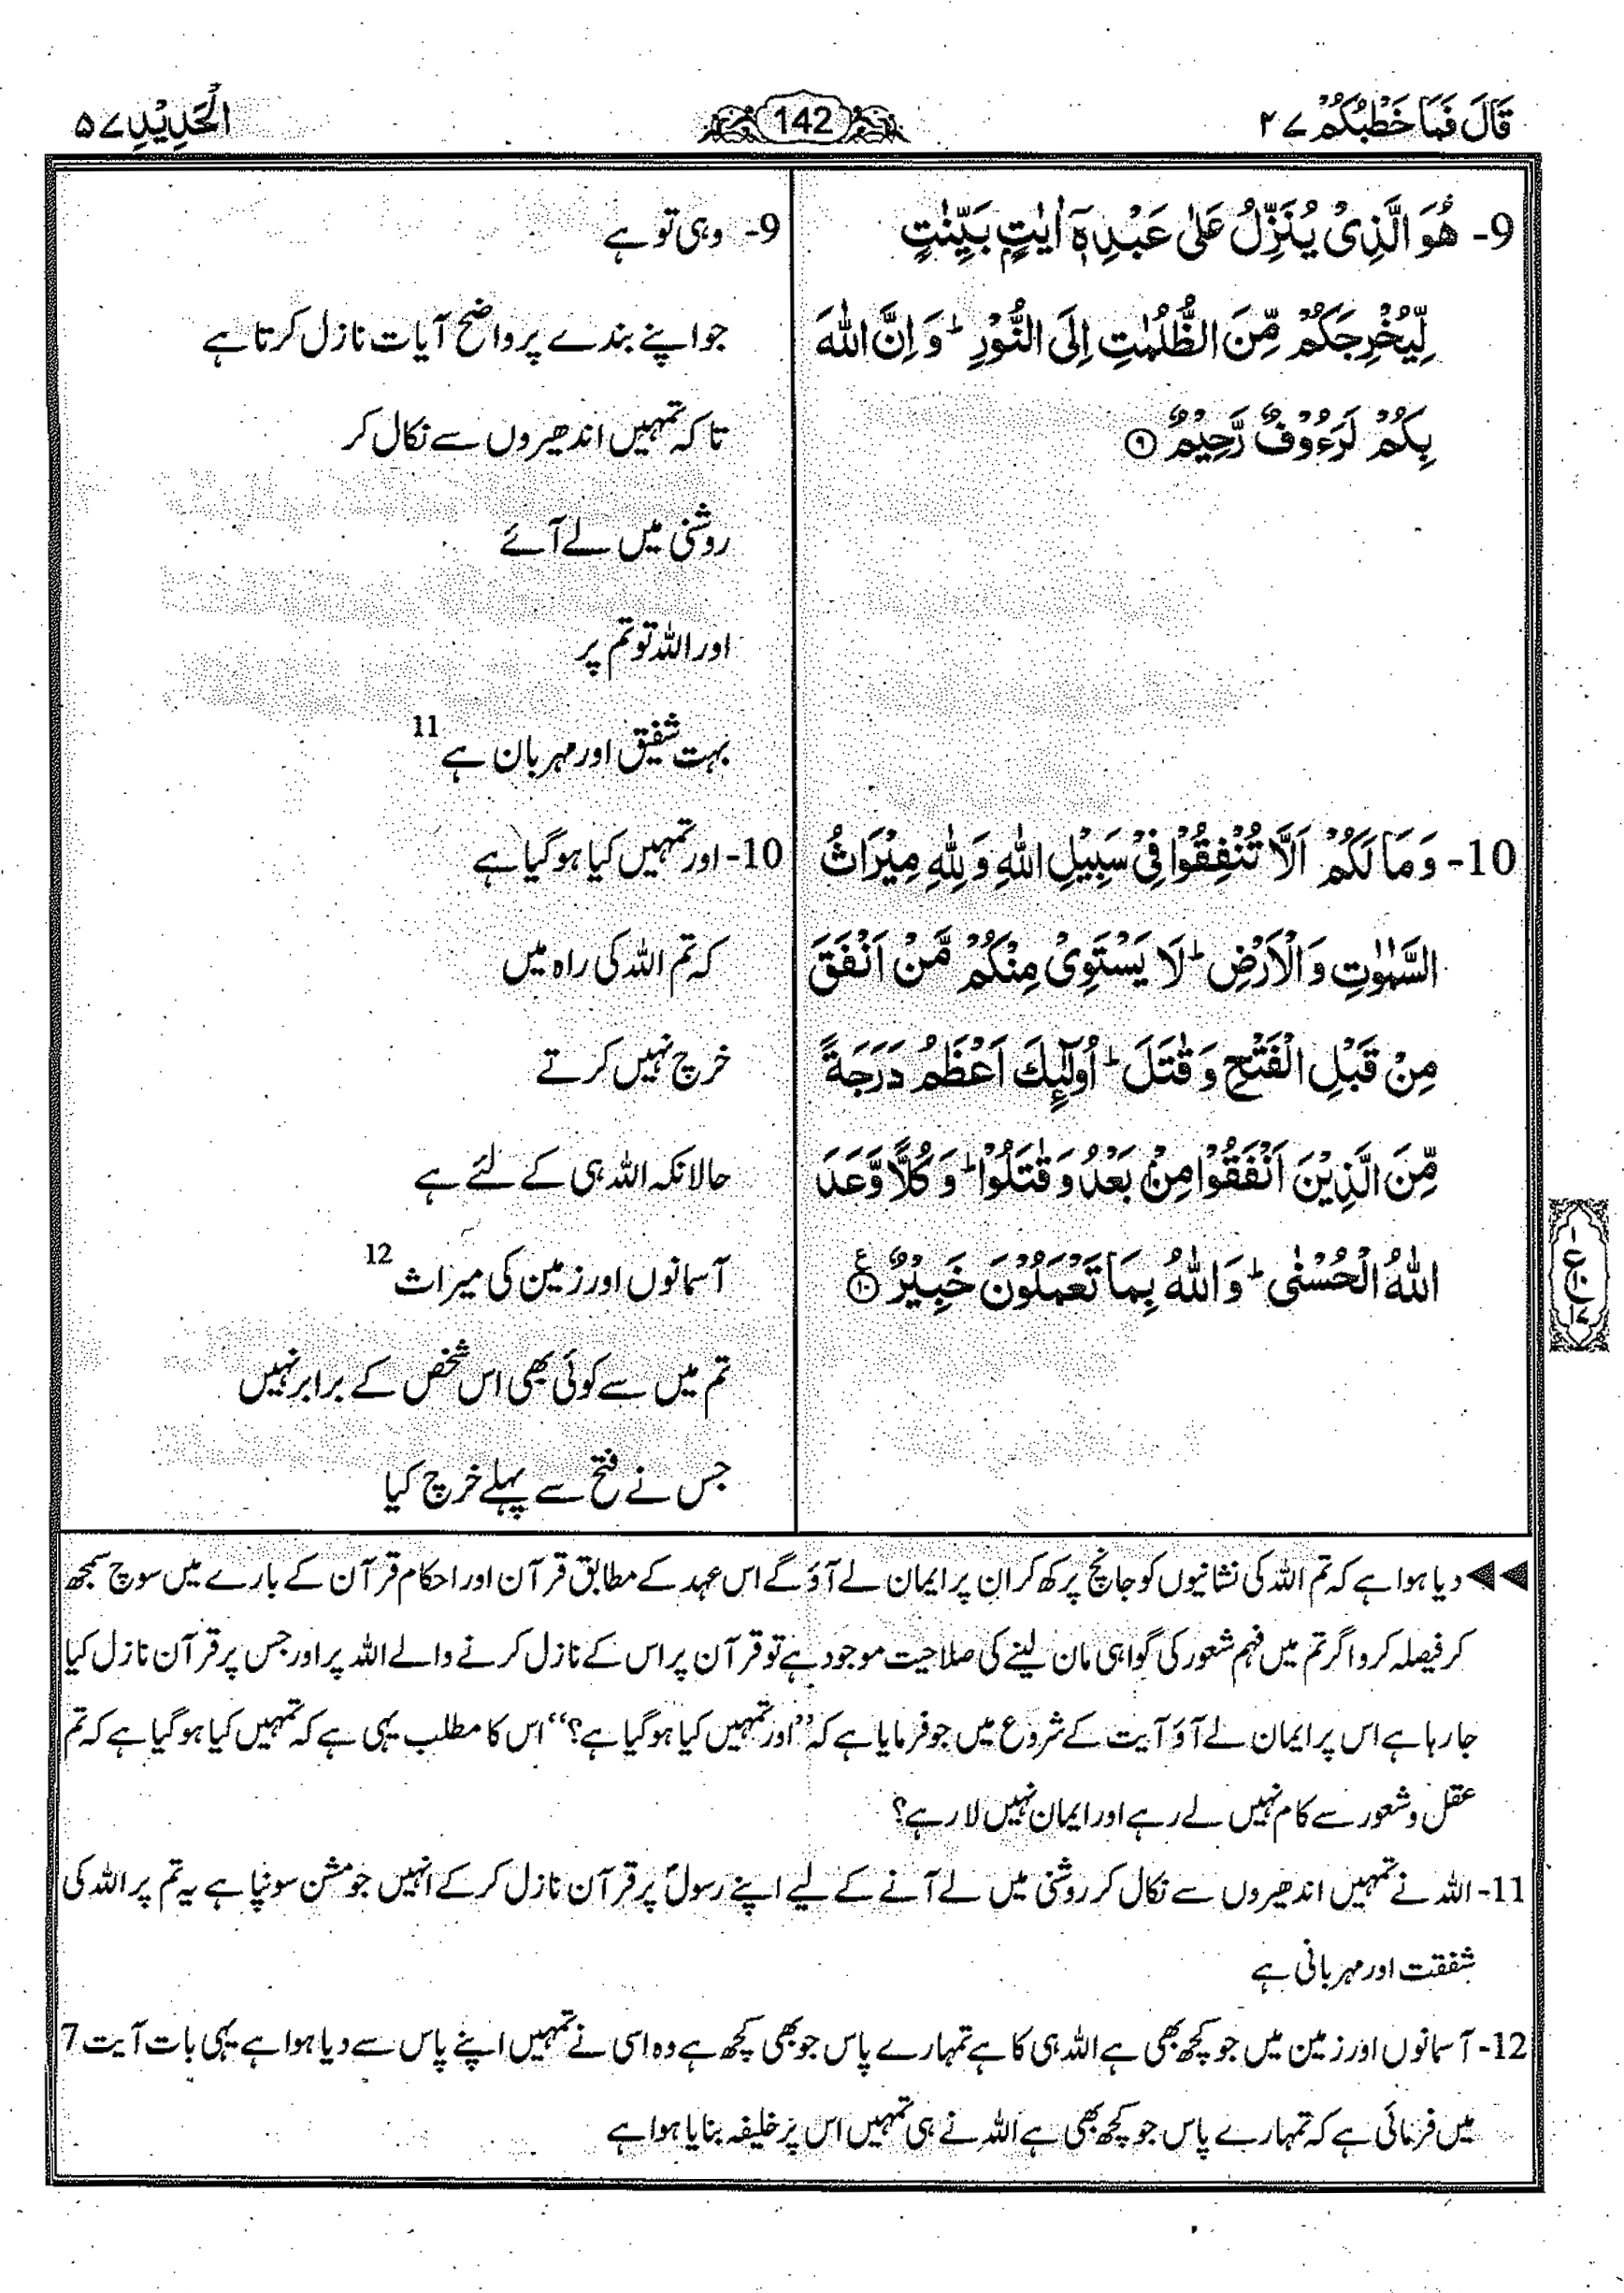 قَالَ فَمَا خَطْبُكُمْ ۲۷
142
اَلْحَدِيْدِ ۵۷
9- هُوَ الَّذِيْ يُنَزِّلُ عَلٰى عَبْدِهٖۤ اٰيٰتٍۭ بَيِّنٰتٍ
لِّيُخْرِجَكُمْ مِّنَ الظُّلُمٰتِ اِلَى النُّوْرِ ؕ وَ اِنَّ اللّٰهَ
بِكُمْ لَرَءُوْفٌ رَّحِيْمٌ ۹
10- وَ مَا لَكُمْ اَلَّا تُنْفِقُوْا فِيْ سَبِيْلِ اللّٰهِ وَ لِلّٰهِ مِيْرَاثُ
السَّمٰوٰتِ وَ الْاَرْضِ ؕ لَا يَسْتَوِيْ مِنْكُمْ مَّنْ اَنْفَقَ
مِنْ قَبْلِ الْفَتْحِ وَ قٰتَلَ ؕ اُولٰٓئِكَ اَعْظَمُ دَرَجَةً
مِّنَ الَّذِيْنَ اَنْفَقُوْا مِنْۢ بَعْدُ وَ قٰتَلُوْا ؕ وَ كُلًّا وَّعَدَ
اللّٰهُ الْحُسْنٰى ؕ وَ اللّٰهُ بِمَا تَعْمَلُوْنَ خَبِيْرٌ ۱۰ ع
9- وہی تو ہے
جو اپنے بندے پر واضح آیات نازل کرتا ہے
تاکہ تمہیں اندھیروں سے نکال کر
روشنی میں لے آئے
اور اللہ تو تم پر
بہت شفیق اور مہربان ہے 11
10- اور تمہیں کیا ہو گیا ہے
کہ تم اللہ کی راہ میں
خرچ نہیں کرتے
حالانکہ اللہ ہی کے لئے ہے
آسمانوں اور زمین کی میراث 12
تم میں سے کوئی بھی اس شخص کے برابر نہیں
جس نے فتح سے پہلے خرچ کیا
دیا ہوا ہے کہ تم اللہ کی نشانیوں کو جانچ پرکھ کر ان پر ایمان لے آؤ گے اس عہد کے مطابق قرآن اور احکام قرآن کے بارے میں سوچ سمجھ
کر فیصلہ کرو اگر تم میں فہم شعور کی گواہی مان لینے کی صلاحیت موجود ہے تو قرآن پر اس کے نازل کرنے والے اللہ پر اور جس پر قرآن نازل کیا
جا رہا ہے اس پر ایمان لے آؤ آیت کے شروع میں جو فرمایا ہے کہ ’’اور تمہیں کیا ہو گیا ہے؟‘‘ اس کا مطلب یہی ہے کہ تمہیں کیا ہو گیا ہے کہ تم
عقل و شعور سے کام نہیں لے رہے اور ایمان نہیں لا رہے؟
11- اللہ نے تمہیں اندھیروں سے نکال کر روشنی میں لے آنے کے لیے اپنے رسولؐ پر قرآن نازل کر کے انہیں جو مشن سونپا ہے یہ تم پر اللہ کی
شفقت اور مہربانی ہے
12- آسمانوں اور زمین میں جو کچھ بھی ہے اللہ ہی کا ہے تمہارے پاس جو بھی کچھ ہے وہ اسی نے تمہیں اپنے پاس سے دیا ہوا ہے یہی بات آیت 7
میں فرمائی ہے کہ تمہارے پاس جو کچھ بھی ہے اللہ نے ہی تمہیں اس پر خلیفہ بنایا ہوا ہے